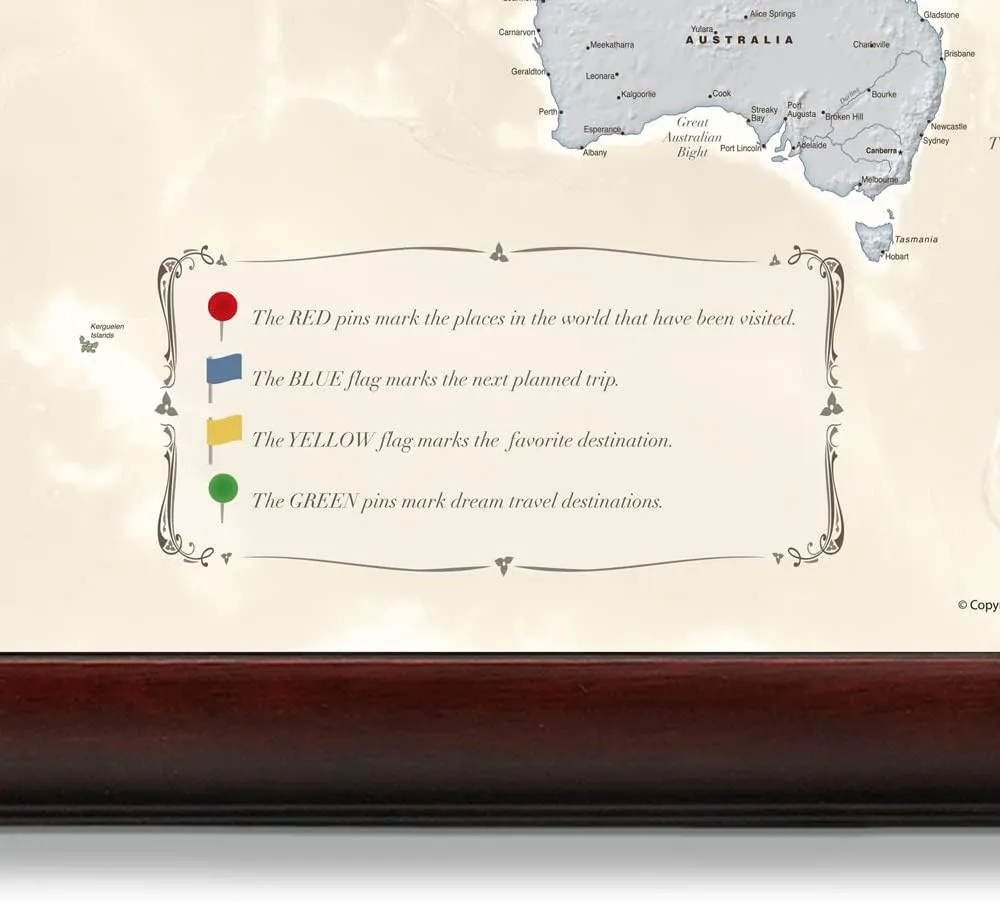 Alice Springs
Gladstone
Carnarvon
Yulara
AUSTRALIA
Meekatharra
Charleville
Brisbane
Geraldton
Leonara
Kalgoorlie
Cook
Darling
Bourke
Perth
Streaky
Bay
Port
Augusta
Broken Hill
Great
Australian
Bight
Esperance
Newcastle
Sydney
Port Lincoln
Adelaide
Canberra
Albany
T
Melbourne
Tasmania
Hobart
Kerguelen
Islands
The RED pins mark the places in the world that have been visited.
The BLUE flag marks the next planned trip.
The YELLOW flag marks the favorite destination.
The GREEN pins mark dream travel destinations.
© Copy